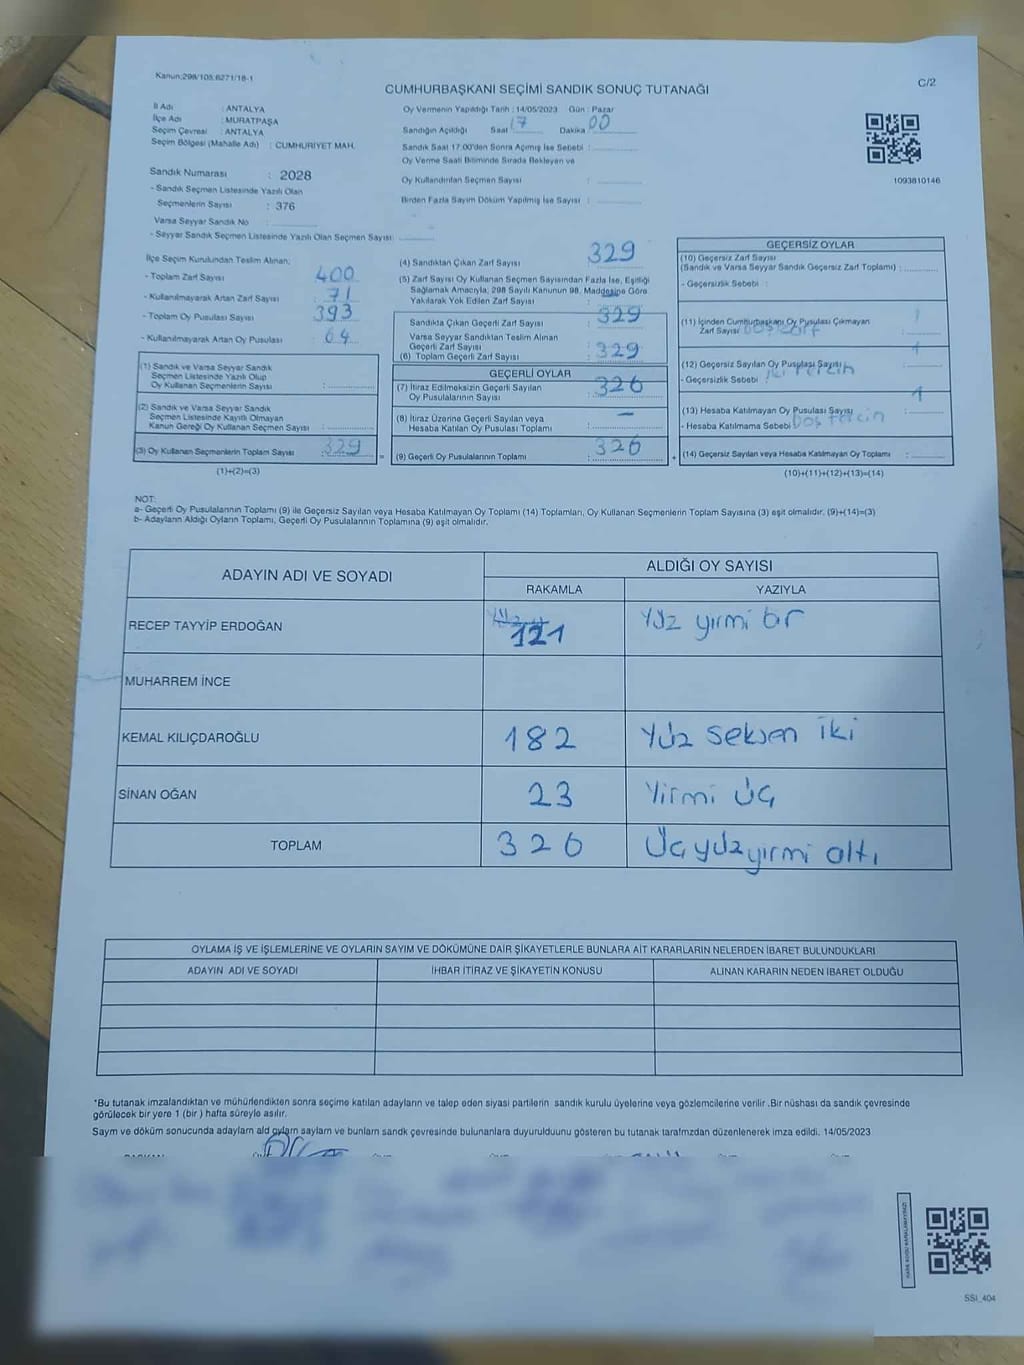 Kanun:298/105,6271/18-1
C/2
CUMHURBAŞKANI SEÇİMİ SANDIK SONUÇ TUTANAĞI
İl Adı : ANTALYA
İlçe Adı : MURATPAŞA
Seçim Çevresi : ANTALYA
Seçim Bölgesi (Mahalle Adı) : CUMHURİYET MAH.
Sandık Numarası : 2028
- Sandık Seçmen Listesinde Yazılı Olan
Seçmenlerin Sayısı : 376
Varsa Seyyar Sandık No :
- Seyyar Sandık Seçmen Listesinde Yazılı Olan Seçmen Sayısı:
Oy Vermenin Yapıldığı Tarih : 14/05/2023 Gün : Pazar
Sandığın Açıldığı Saat 17 Dakika 00
Sandık Saat 17:00'den Sonra Açımış İse Sebebi :
Oy Verme Saati Bitiminde Sırada Bekleyen ve
Oy Kullandırılan Seçmen Sayısı :
Birden Fazla Sayım Döküm Yapılmış İse Sayısı :
1093810146
İlçe Seçim Kurulundan Teslim Alınan;
- Toplam Zarf Sayısı : 400
- Kullanılmayarak Artan Zarf Sayısı : 71
- Toplam Oy Pusulası Sayısı : 393
- Kullanılmayarak Artan Oy Pusulası : 64
(1) Sandık ve Varsa Seyyar Sandık
Seçmen Listesinde Yazılı Olup
Oy Kullanan Seçmenlerin Sayısı :
(2) Sandık ve Varsa Seyyar Sandık
Seçmen Listesinde Kayıtlı Olmayan
Kanun Gereği Oy Kullanan Seçmen Sayısı :
(3) Oy Kullanan Seçmenlerin Toplam Sayısı : 329
(1)+(2)=(3)
(4) Sandıktan Çıkan Zarf Sayısı : 329
(5) Zarf Sayısı Oy Kullanan Seçmen Sayısından Fazla İse, Eşitliği
Sağlamak Amacıyla; 298 Sayılı Kanunun 98. Maddesine Göre
Yakılarak Yok Edilen Zarf Sayısı :
Sandıkta Çıkan Geçerli Zarf Sayısı : 329
Varsa Seyyar Sandıktan Teslim Alınan
Geçerli Zarf Sayısı
(6) Toplam Geçerli Zarf Sayısı : 329
GEÇERLİ OYLAR
(7) İtiraz Edilmeksizin Geçerli Sayılan
Oy Pusulasının Sayısı : 326
(8) İtiraz Üzerine Geçerli Sayılan veya
Hesaba Katılan Oy Pusulası Toplamı : –
(9) Geçerli Oy Pusulalarının Toplamı : 326
GEÇERSİZ OYLAR
(10) Geçersiz Zarf Sayısı
(Sandık ve Varsa Seyyar Sandık Geçersiz Zarf Toplamı) :
- Geçersizlik Sebebi :
(11) İçinden Cumhurbaşkanı Oy Pusulası Çıkmayan
Zarf Sayısı : boş zarf 1
(12) Geçersiz Sayılan Oy Pusulası Sayısı : 1
- Geçersizlik Sebebi : iki tercih
(13) Hesaba Katılmayan Oy Pusulası Sayısı : 1
- Hesaba Katılmama Sebebi : boş tercin
(14) Geçersiz Sayılan veya Hesaba Katılmayan Oy Toplamı :
(10)+(11)+(12)+(13)=(14)
NOT:
a- Geçerli Oy Pusulalarının Toplamı (9) ile Geçersiz Sayılan veya Hesaba Katılmayan Oy Toplamı (14) Toplamları, Oy Kullanan Seçmenlerin Toplam Sayısına (3) eşit olmalıdır. (9)+(14)=(3)
b- Adayların Aldığı Oyların Toplamı, Geçerli Oy Pusulalarının Toplamına (9) eşit olmalıdır.
ADAYIN ADI VE SOYADI
ALDIĞI OY SAYISI
RAKAMLA YAZIYLA
RECEP TAYYİP ERDOĞAN 121 Yüz yirmi bir
MUHARREM İNCE
KEMAL KILIÇDAROĞLU 182 Yüz seksen iki
SİNAN OĞAN 23 Yirmi üç
TOPLAM 326 Üçyüzyirmi altı
OYLAMA İŞ VE İŞLEMLERİNE VE OYLARIN SAYIM VE DÖKÜMÜNE DAİR ŞİKAYETLERLE BUNLARA AİT KARARLARIN NELERDEN İBARET BULUNDUKLARI
ADAYIN ADI VE SOYADI İHBAR İTİRAZ VE ŞİKAYETİN KONUSU ALINAN KARARIN NEDEN İBARET OLDUĞU
*Bu tutanak imzalandıktan ve mühürlendikten sonra seçime katılan adayların ve talep eden siyasi partilerin sandık kurulu üyelerine veya gözlemcilerine verilir .Bir nüshası da sandık çevresinde
görülecek bir yere 1 (bir ) hafta süreyle asılır.
Saym ve döküm sonucunda adaylarn ald oylarn saylarn ve bunlarn sandk çevresinde bulunanlara duyurulduunu gösteren bu tutanak tarafmzdan düzenlenerek imza edildi. 14/05/2023
SSI_404